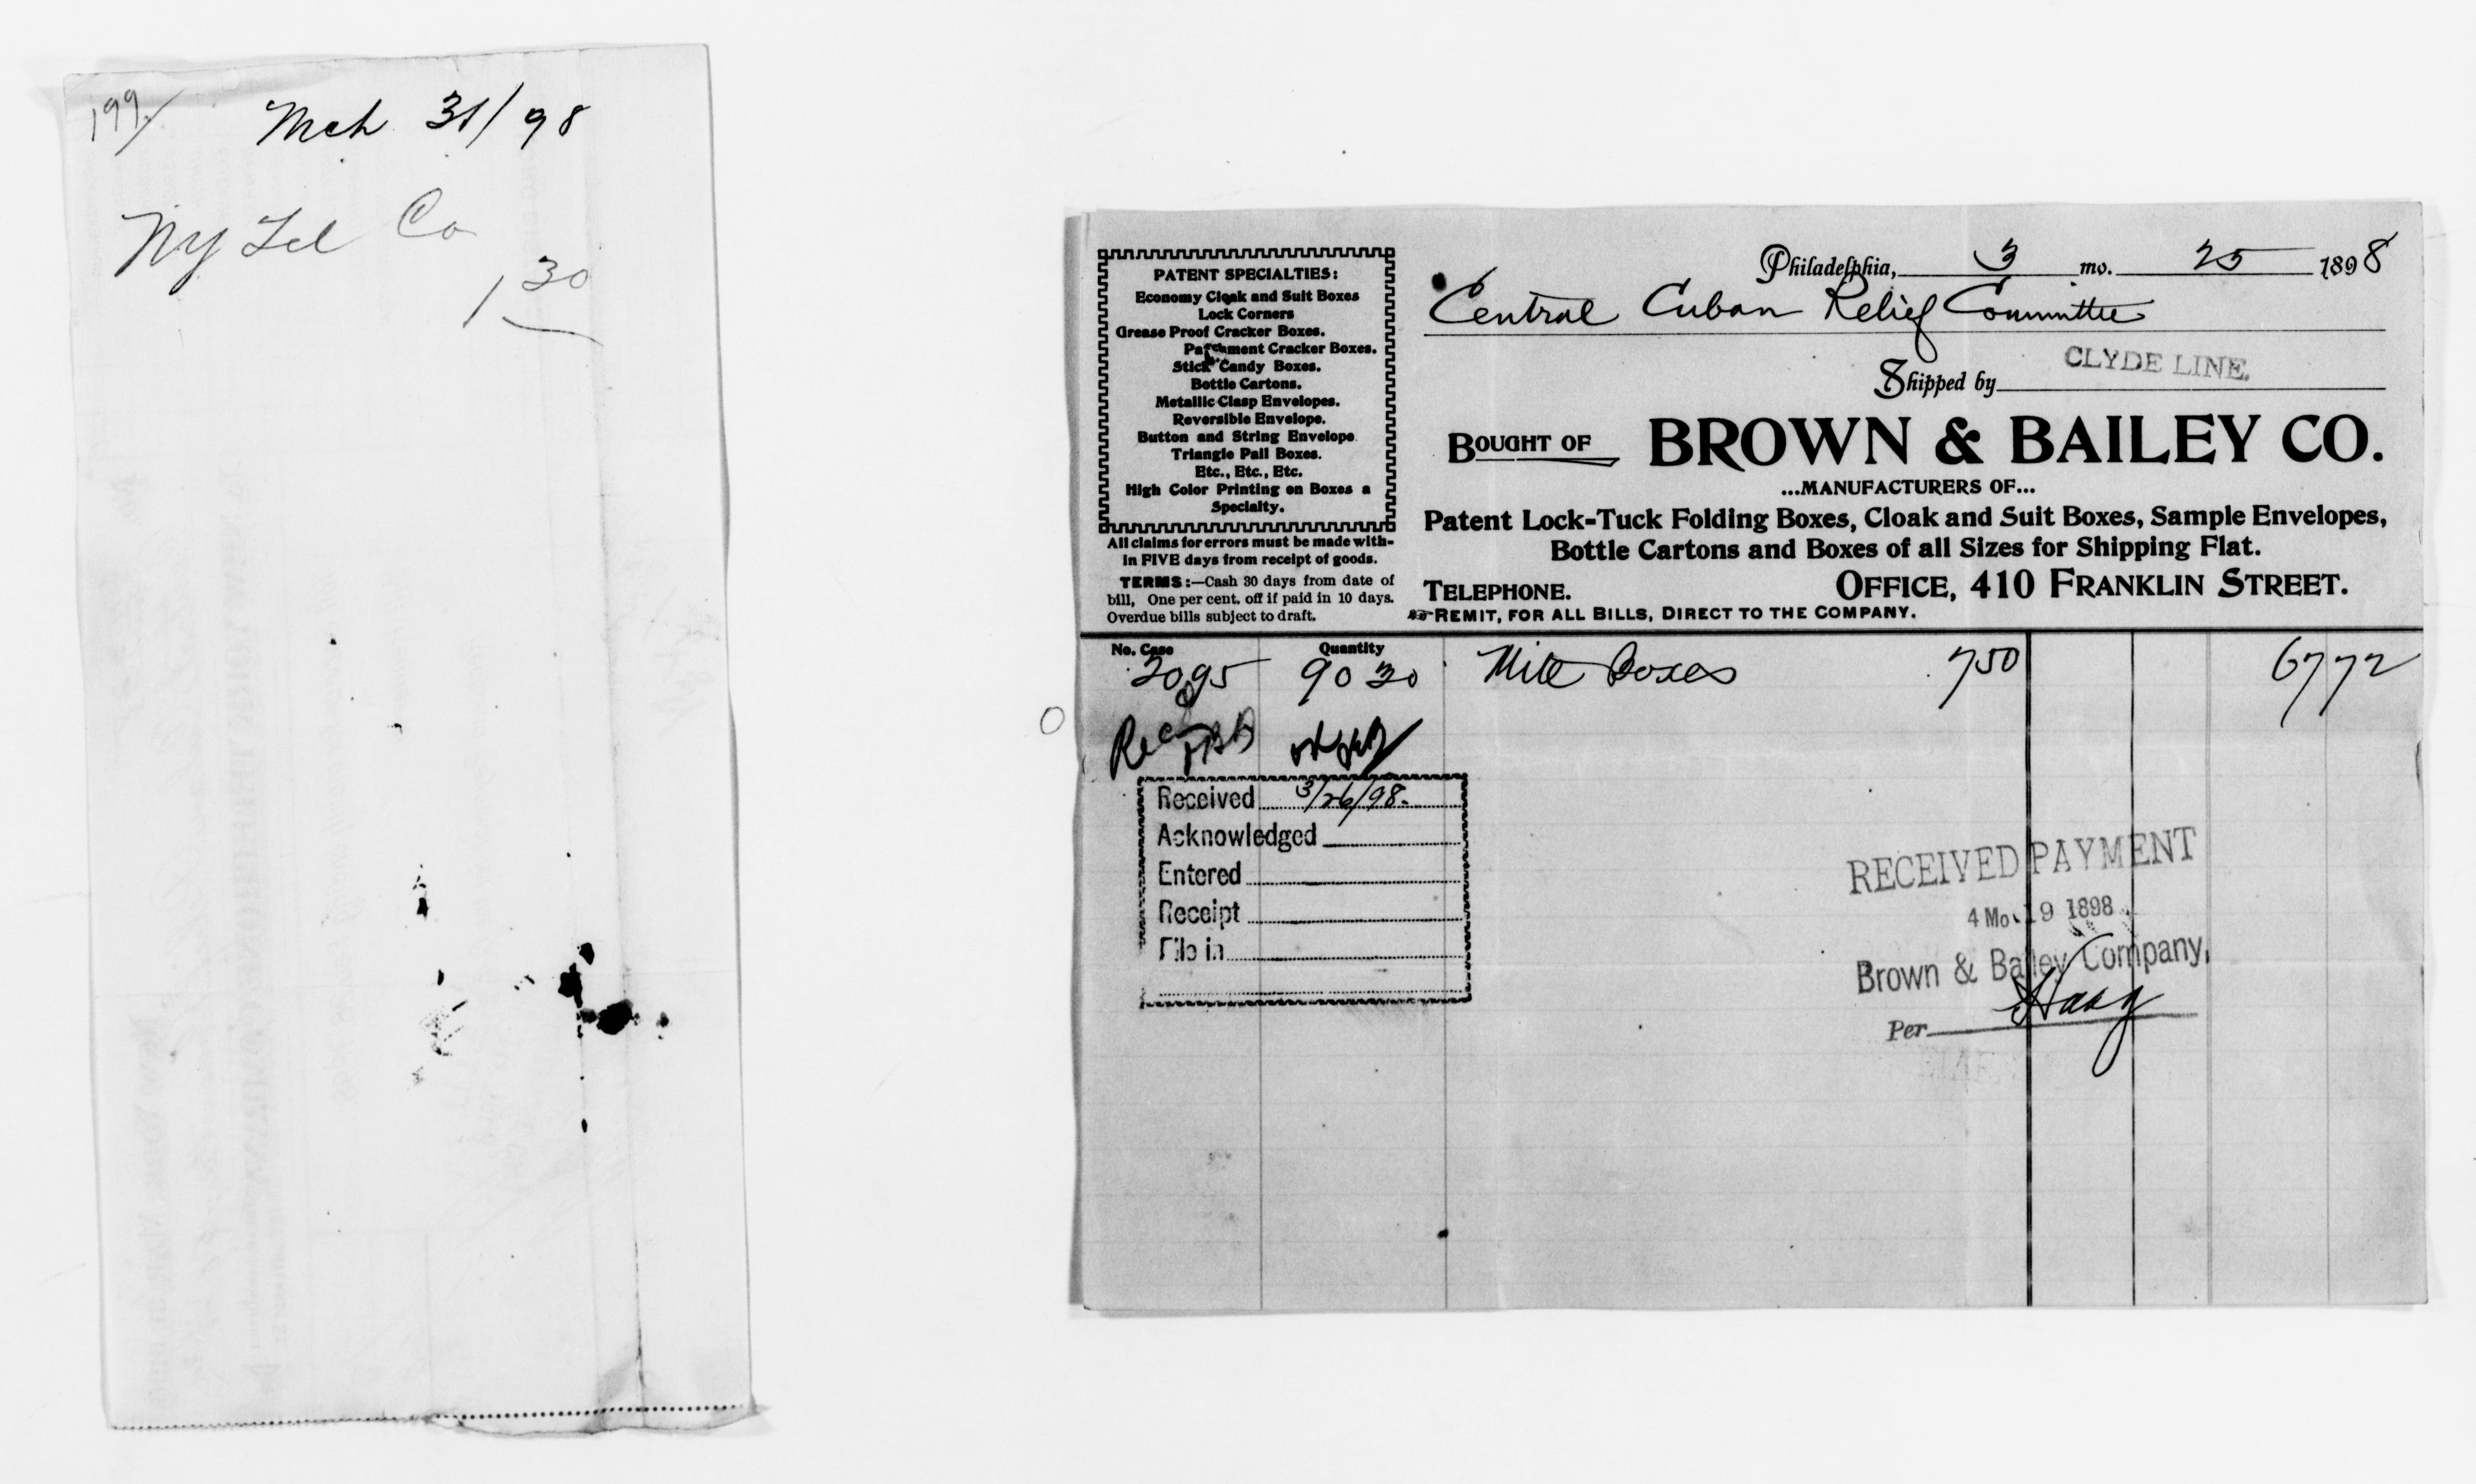 199/
Mch 31/98
NY Tel Co
1 30
PATENT SPECIALTIES:
Economy Cloak and Suit Boxes
Lock Corners
Grease Proof Cracker Boxes.
Parchment Cracker Boxes.
Stick Candy Boxes.
Bottle Cartons.
Metallic Clasp Envelopes.
Reversible Envelope.
Button and String Envelope
Triangle Pail Boxes.
Etc., Etc., Etc.
High Color Printing on Boxes a
Specialty.
All claims for errors must be made with-
in FIVE days from receipt of goods.
TERMS:—Cash 30 days from date of
bill, One per cent. off if paid in 10 days.
Overdue bills subject to draft.
Philadelphia, 3 mo. 25 1898
Central Cuban Relief Committee
Shipped by CLYDE LINE.
BOUGHT OF BROWN & BAILEY CO.
...MANUFACTURERS OF...
Patent Lock-Tuck Folding Boxes, Cloak and Suit Boxes, Sample Envelopes,
Bottle Cartons and Boxes of all Sizes for Shipping Flat.
TELEPHONE. OFFICE, 410 FRANKLIN STREET.
REMIT, FOR ALL BILLS, DIRECT TO THE COMPANY.
No. Case Quantity
2095 9030 Milk Boxes 750 6772
Recd
Received 3/26/98.
Acknowledged
Entered
Receipt
File in
RECEIVED PAYMENT
4 Mo. 19 1898
Brown & Bailey Company,
Per Haag